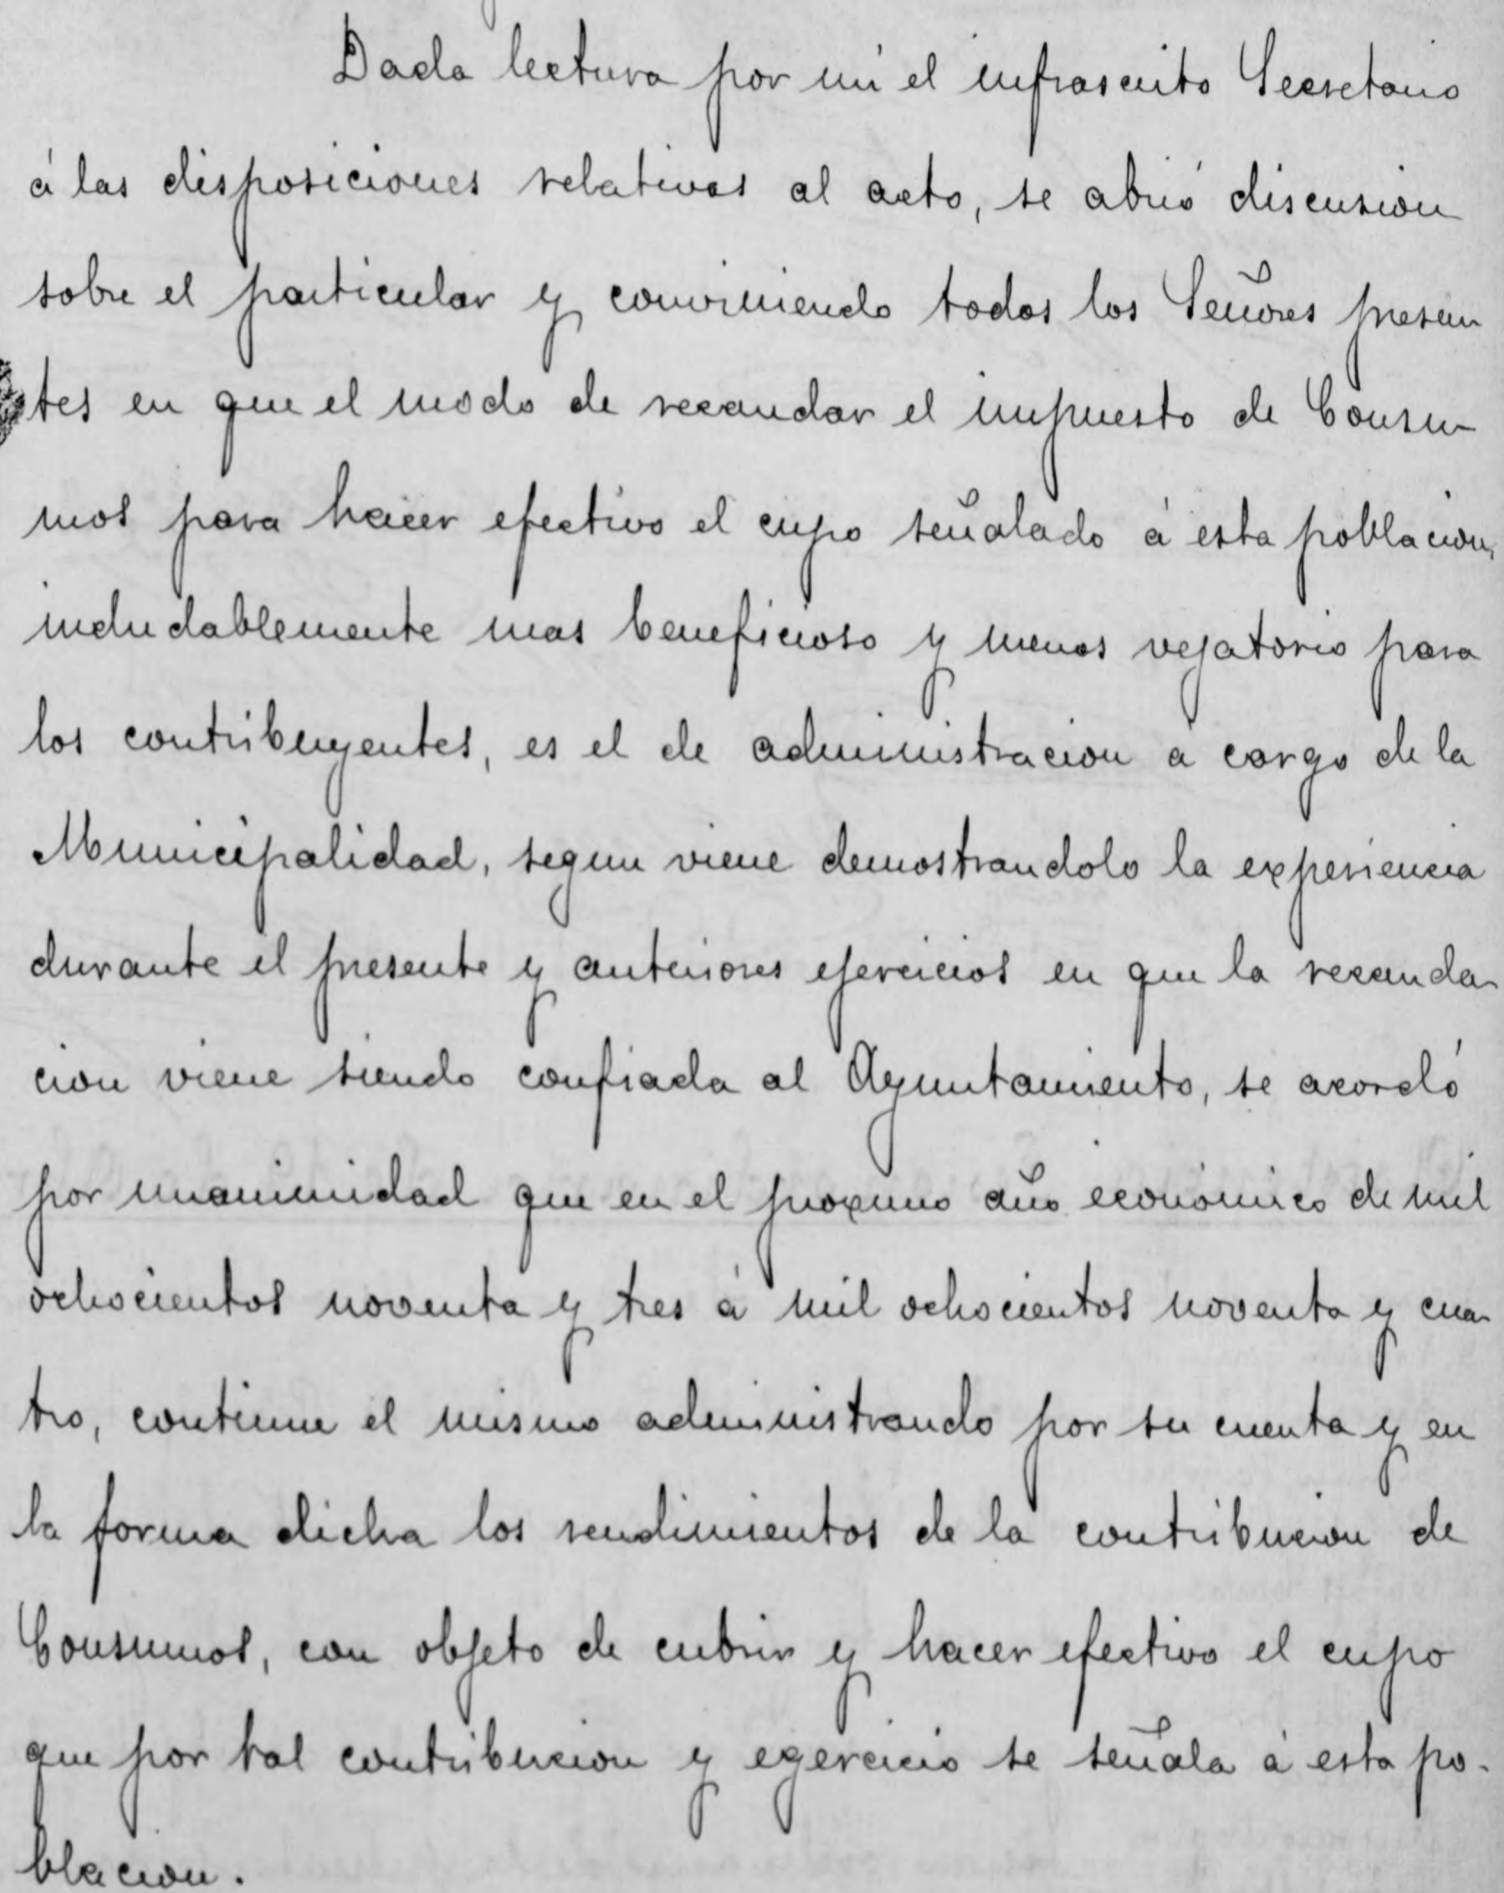 Dada lectura por mi el infrascrito Secretario
á las disposiciones relativas al acto, se abrió discusion
sobre el particular y conviniendo todos los Señores presen
tes en que el modo de recaudar el impuesto de Consu-
mos para hacer efectivo el cupo señalado á esta poblacion,
indudablemente mas beneficioso y menos vejatorio para
los contribuyentes, es el de administracion á cargo de la
Municipalidad, segun viene demostrandolo la experiencia
durante el presente y anteriores ejercicios en que la recauda-
cion viene siendo confiada al Ayuntamiento, se acordó
por unanimidad que en el proximo año económico de mil
ochocientos noventa y tres á mil ochocientos noventa y cua-
tro, continue el mismo administrando por su cuenta y en
la forma dicha los rendimientos de la contribucion de
Consumos, con objeto de cubrir y hacer efectivo el cupo
que por tal contribucion y egercicio se señala á esta po-
blacion.